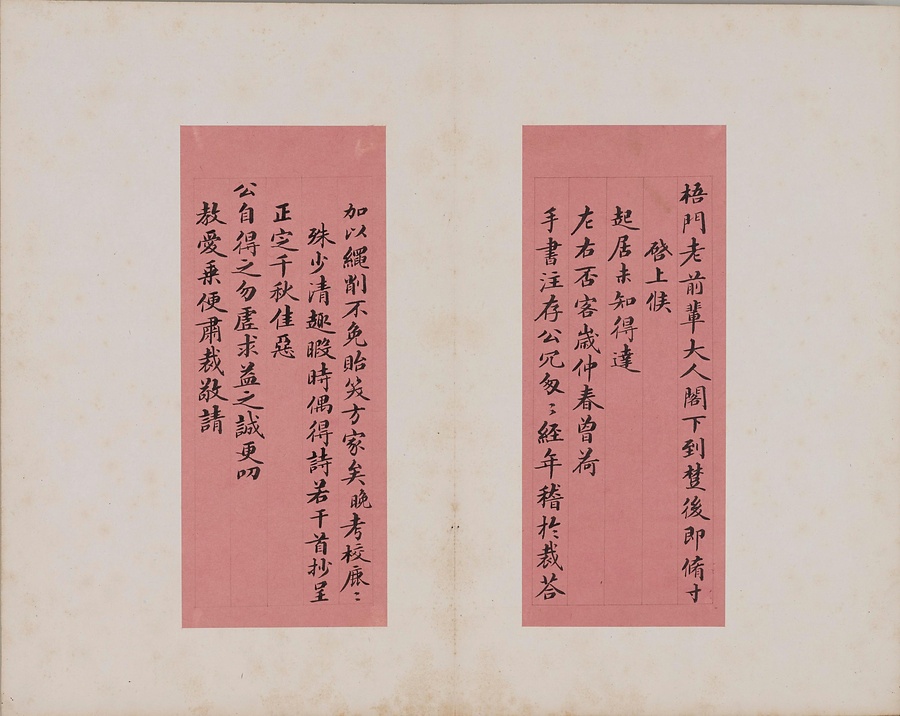 梧門老前輩大人閣下到楚後即脩寸
啓上候
起居未知得達
左右否客歲仲春曾荷
手書注存公冗匆〻經年稽於裁荅
加以繩削不免貽笑方家矣晚考校鹿〻
殊少清趣暇時偶得詩若干首抄呈
正定千秋佳惡
公自得之勿虛求益之誠更叨
教愛乘便肅裁敬請